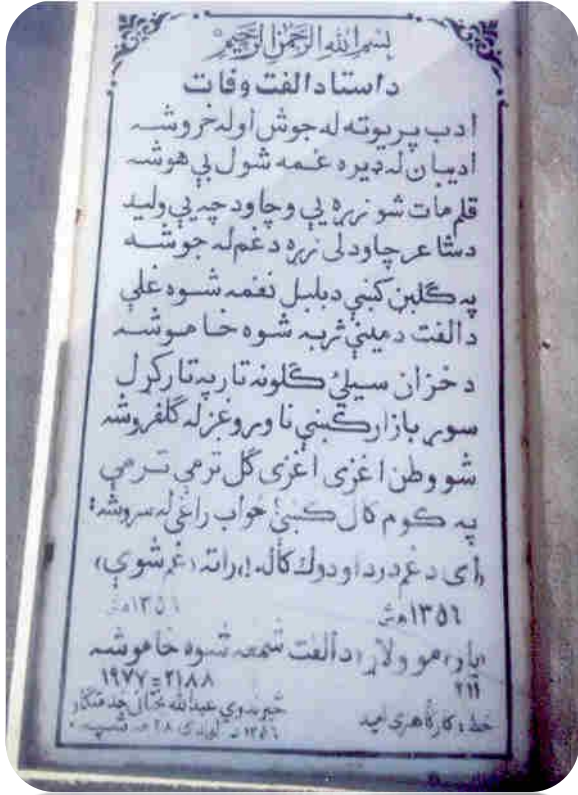 بسم الله الرحمن الرحیم
د استاد الفت وفات
ادب پریوته له جوش او له خروشه
ادیبان له ډیره غمه شول بې هوشه
قلم مات شو زړه یې وچاود چه یې ولید
د شاعر چاودلی زړه د غم له جوشه
په ګلبن کښې د بلبل نغمه شوه غلې
د الفت د مینې ژبه شوه خاموشه
د خزان سیلۍ ګلونه تار په تار کړل
سور بازار کښې نا وړوغز له ګلفروشه
شو وطن اغزی اغزی ګل ترمې ترمې
په کوم کال کښې ځواب راغی له سروشه:
(ای د غم درد او د وك کاله!، راته (غم شوې)
۱۳۵۶ هش
(یار) مو ولاړ (د الفت شمعه شوه خاموشه
۲۱۱
۲۱۸۸=۱۹۷۷
خط: کارګاه هنری امید
څیړندوی عبدالله بختانی خدمتګار
۱۳۵۶ د لیندۍ ۲۸ مه شپه